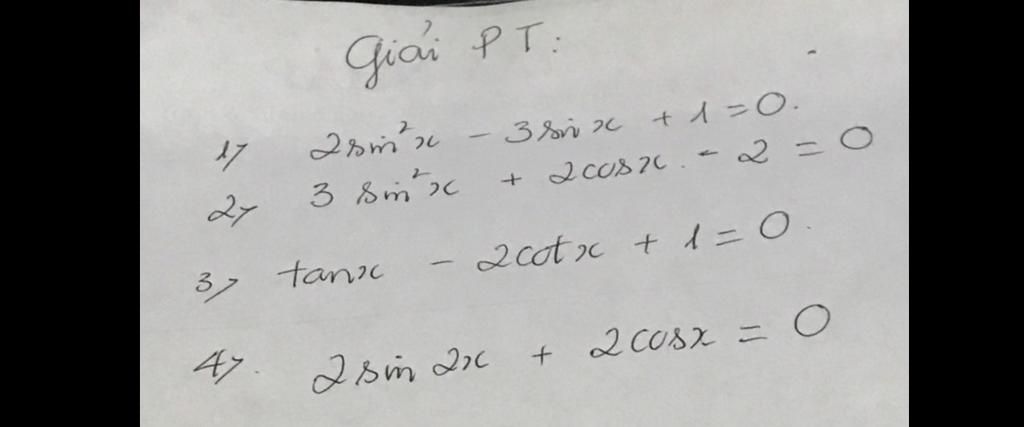 Giải PT:
1> 2sin²x - 3sinx + 1 = 0.
2> 3 sin²x + 2cosx. - 2 = 0
3> tanx - 2cotx + 1 = 0.
4>. 2sin2x + 2cosx = 0